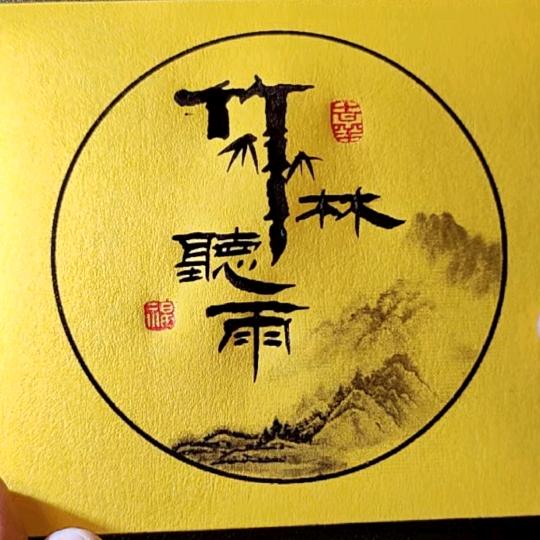 竹
林
聽
雨